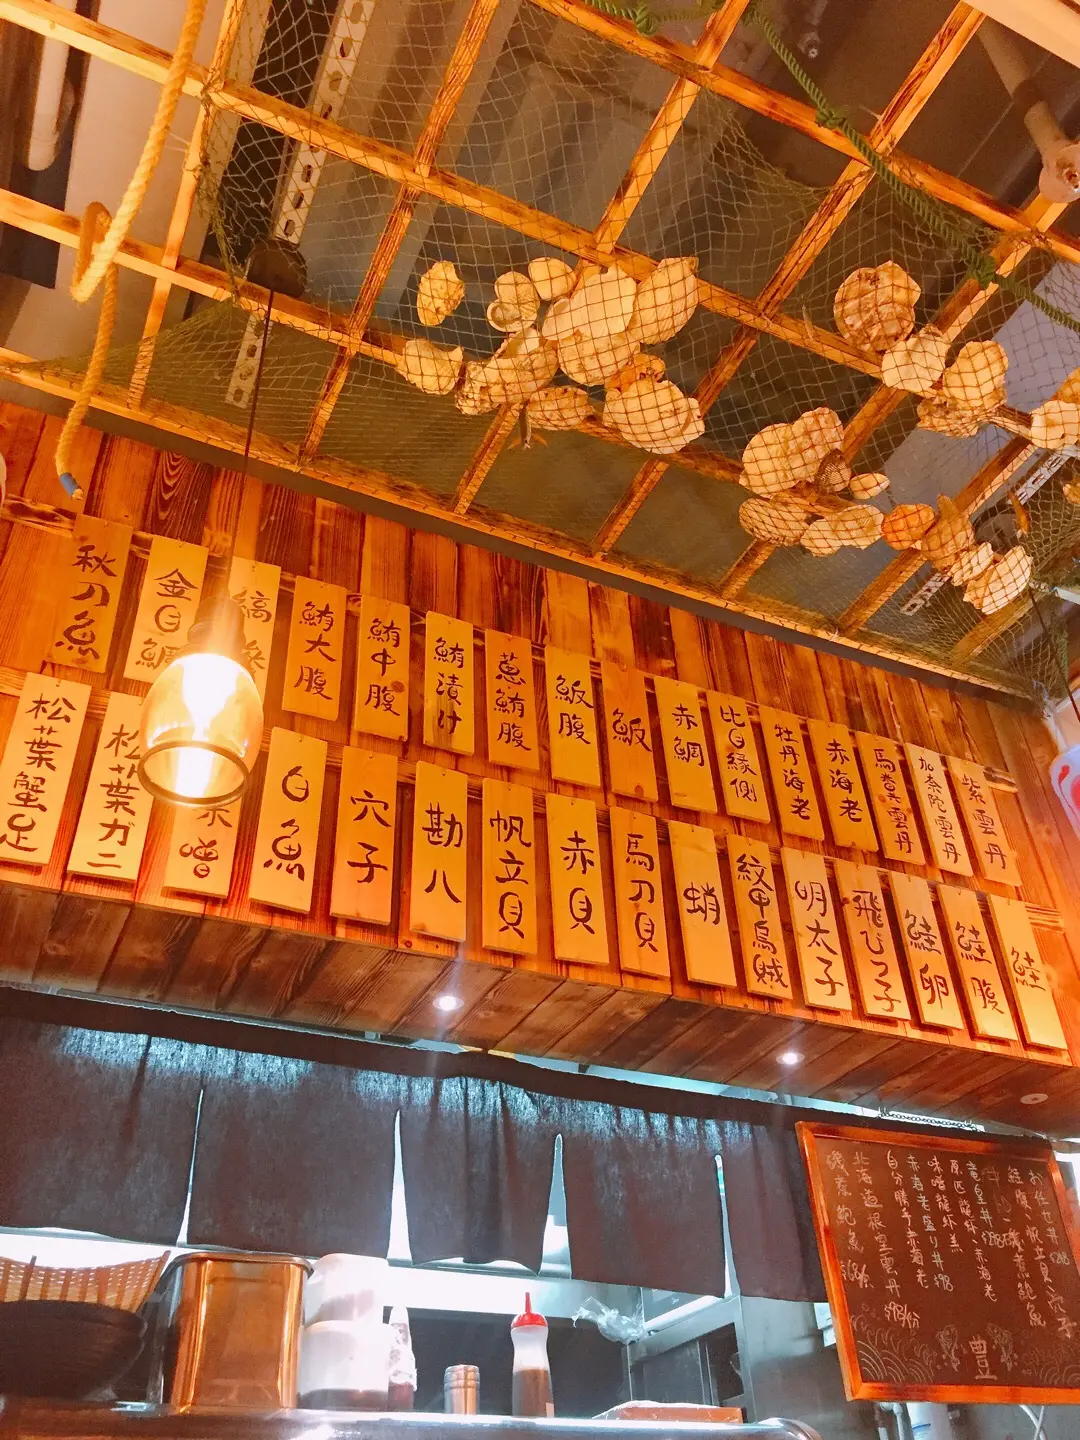 秋刀魚
金目鯛
鮪大腹
鮪中腹
鮪漬け
葱鮪腹
魬腹
魬
赤鯛
比目緣側
牡丹海老
赤海老
馬糞雲丹
加奈陀雲丹
紫雲丹
松葉蟹足
松葉ガニ
白魚
穴子
勘八
帆立貝
赤貝
馬刀貝
蛸
紋甲烏賊
明太子
飛びっ子
鮭卵
鮭腹
鮭
お任せ丼
鮭腹、帆立貝、穴子
磯煮鮑魚
竜皇丼
赤海老
味噌龍虾羔
赤海老盛り丼 $98
自分勝手赤海老
北海道根室雲丹 $98/份
磯煮鮑魚
豊